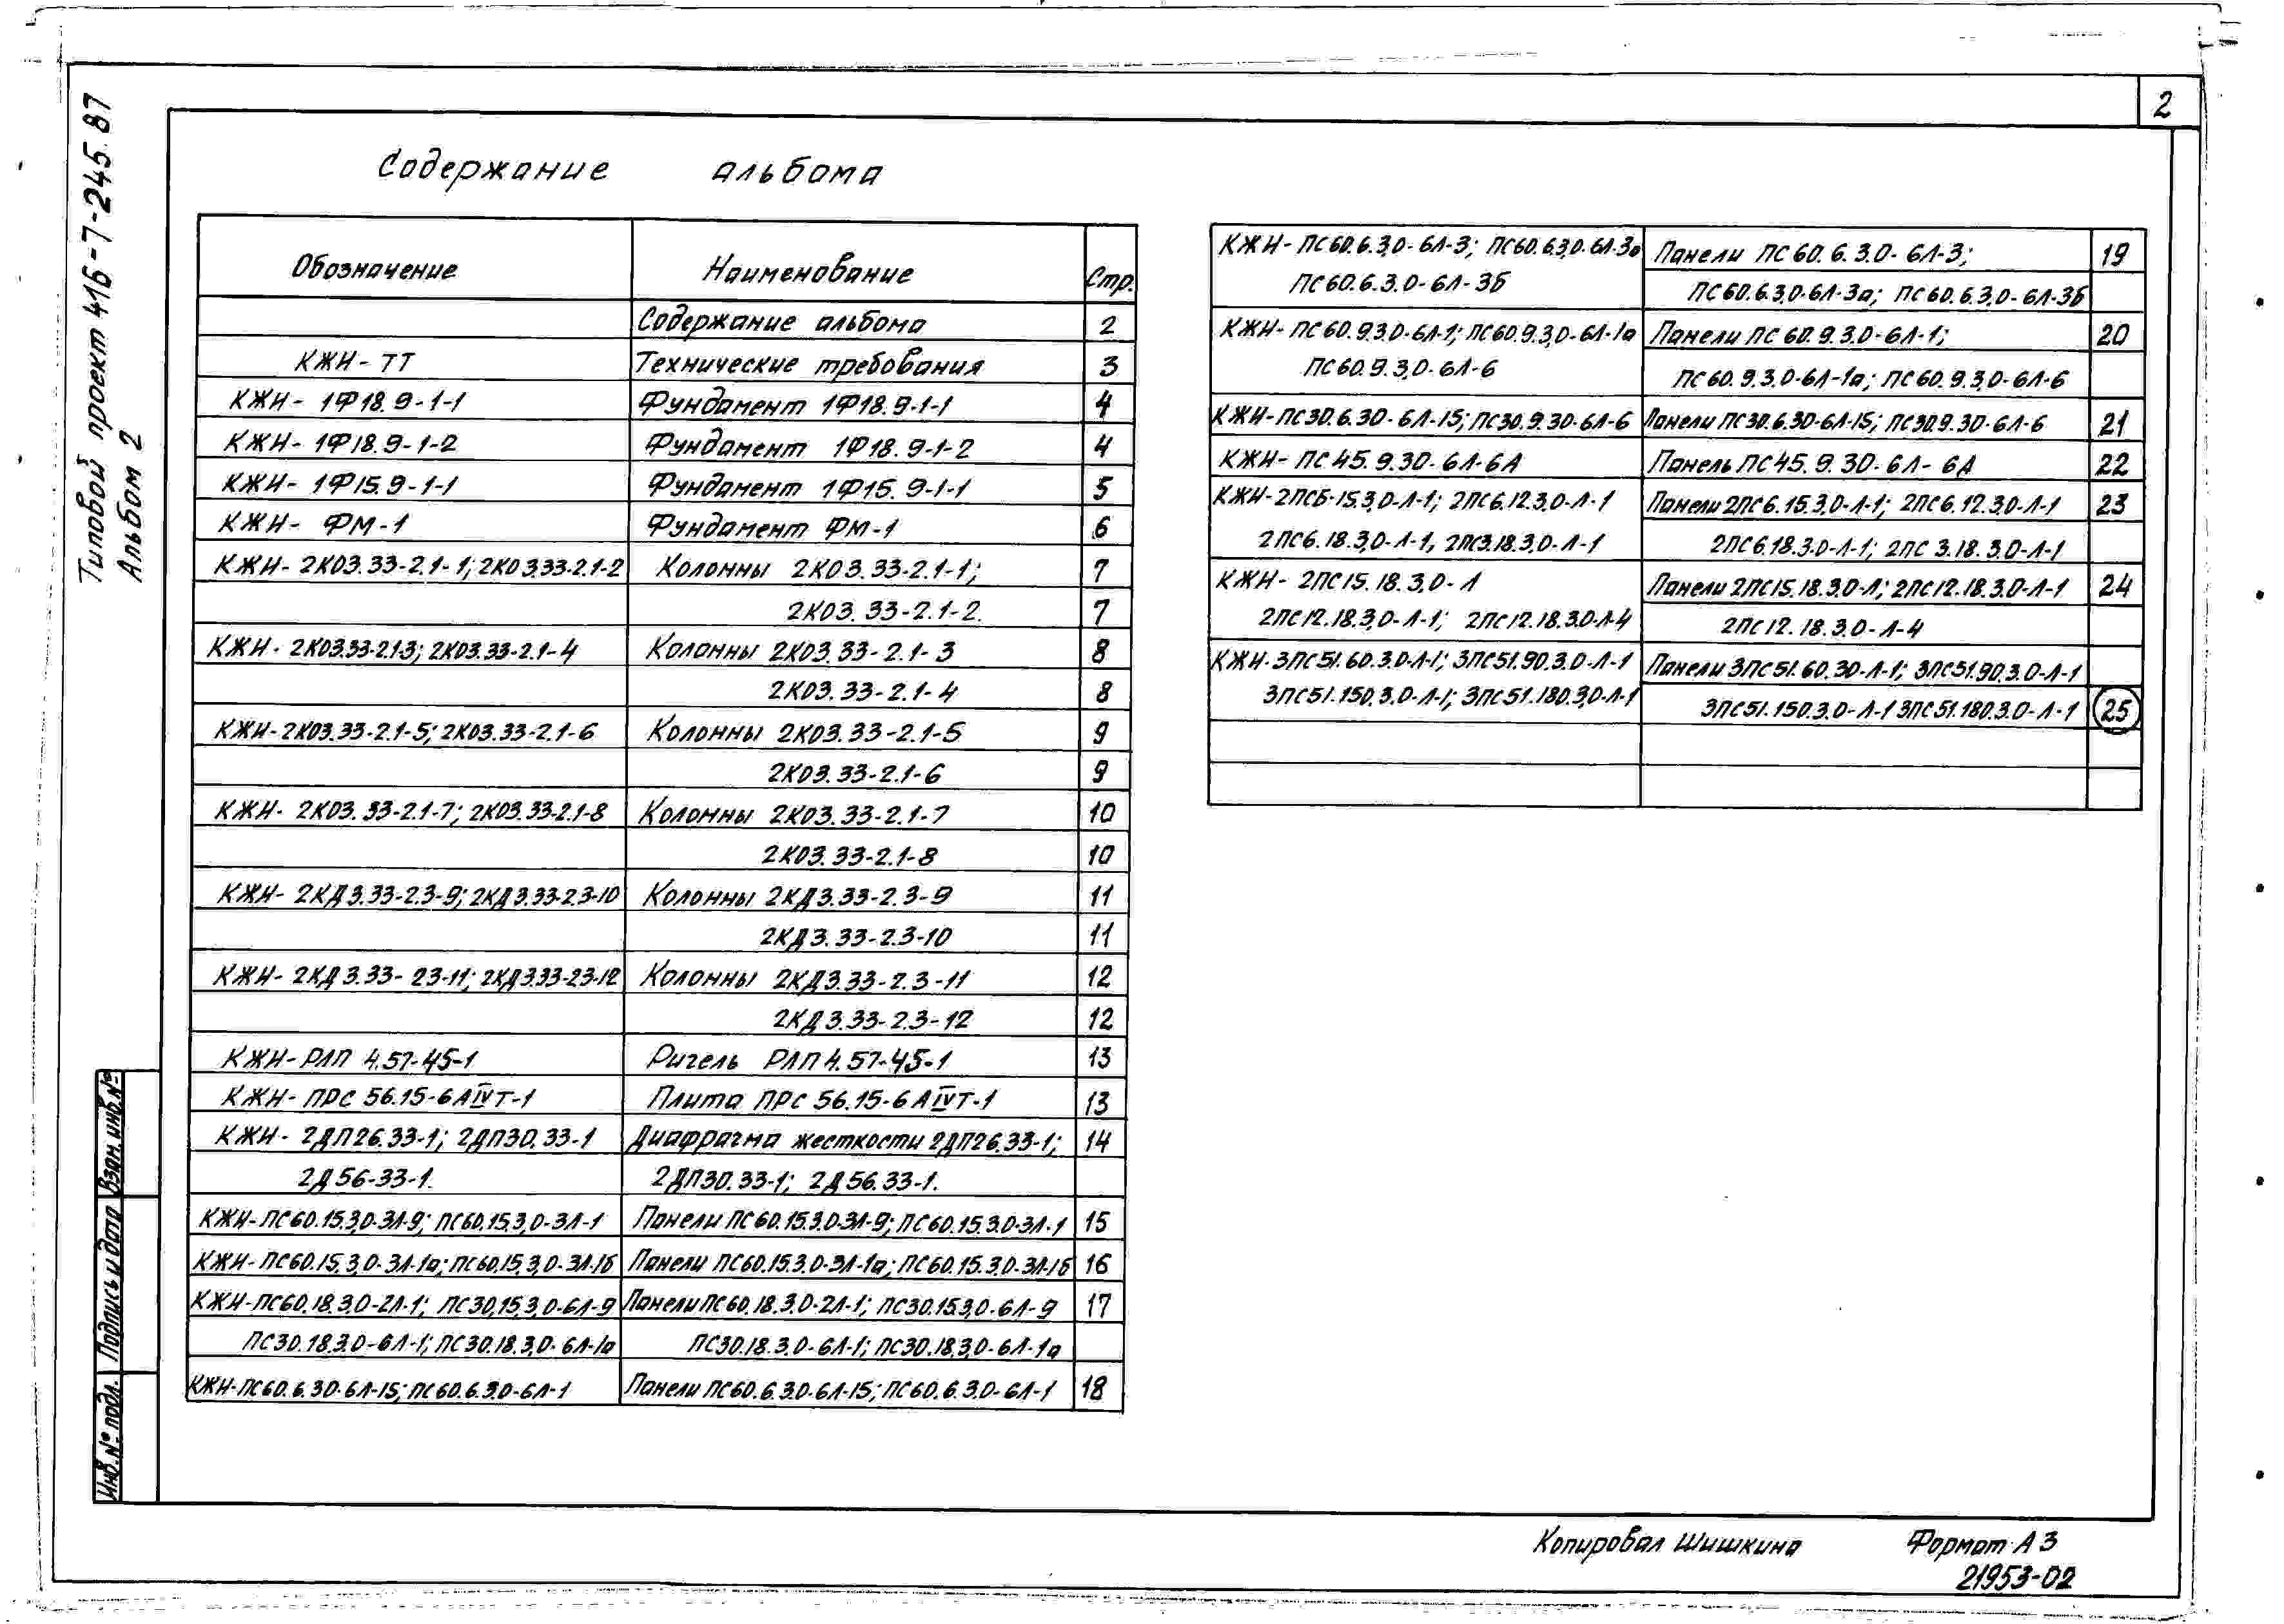 2
Типовой проект 416-7-245.87
Альбом 2
Содержание альбома
Обозначение Наименование Стр.
Содержание альбома 2
КЖИ-ТТ Технические требования 3
КЖИ- 1Ф18.9-1-1 Фундамент 1Ф18.9-1-1 4
КЖИ- 1Ф18.9-1-2 Фундамент 1Ф18.9-1-2 4
КЖИ- 1Ф15.9-1-1 Фундамент 1Ф15.9-1-1 5
КЖИ- ФМ-1 Фундамент ФМ-1 6
КЖИ- 2КО3.33-2.1-1; 2КО3.33-2.1-2 Колонны 2КО3.33-2.1-1; 7
2КО3.33-2.1-2. 7
КЖИ- 2КО3.33-2.1-3; 2КО3.33-2.1-4 Колонны 2КО3.33-2.1-3 8
2КО3.33-2.1-4 8
КЖИ-2КО3.33-2.1-5; 2КО3.33-2.1-6 Колонны 2КО3.33-2.1-5 9
2КО3.33-2.1-6 9
КЖИ- 2КО3.33-2.1-7; 2КО3.33-2.1-8 Колонны 2КО3.33-2.1-7 10
2КО3.33-2.1-8 10
КЖИ- 2КД3.33-2.3-9; 2КД3.33-2.3-10 Колонны 2КД3.33-2.3-9 11
2КД3.33-2.3-10 11
КЖИ- 2КД3.33-23-11; 2КД3.33-23-12 Колонны 2КД3.33-2.3-11 12
2КД3.33-2.3-12 12
КЖИ-РЛП 4.57-45-1 Ригель РЛП 4.57-45-1 13
КЖИ- ПРС 56.15-6АIVТ-1 Плита ПРС 56.15-6АIVТ-1 13
КЖИ- 2ДП26.33-1; 2ДП30.33-1 Диафрагма жесткости 2ДП26.33-1; 14
2Д56-33-1. 2ДП30.33-1; 2Д56.33-1.
КЖИ-ПС60.15.3,0-3Л-9; ПС60.15.3,0-3Л-1 Панели ПС60.15.3.0-3Л-9; ПС60.15.3.0-3Л-1 15
КЖИ-ПС60.15.3,0-3Л-1а; ПС60.15.3,0-3Л-1б Панели ПС60.15.3.0-3Л-1а; ПС60.15.3.0-3Л-1б 16
КЖИ-ПС60.18.3,0-2Л-1; ПС30.15.3,0-6Л-9 Панели ПС60.18.3.0-2Л-1; ПС30.15.3,0-6Л-9 17
ПС30.18.3.0-6Л-1; ПС30.18.3,0-6Л-1а ПС30.18.3.0-6Л-1; ПС30.18.3,0-6Л-1а
КЖИ-ПС60.6.30-6Л-15; ПС60.6.3.0-6Л-1 Панели ПС60.6.3.0-6Л-15; ПС60.6.3.0-6Л-1 18
КЖИ-ПС60.6.3,0-6Л-3; ПС60.6.3,0-6Л-3а Панели ПС60.6.3.0-6Л-3; 19
ПС60.6.3.0-6Л-3б ПС60.6.3,0-6Л-3а; ПС60.6.3,0-6Л-3б
КЖИ-ПС60.9.3.0-6Л-1; ПС60.9.3,0-6Л-1а Панели ПС60.9.3.0-6Л-1; 20
ПС60.9.3,0-6Л-6 ПС60.9.3,0-6Л-1а; ПС60.9.3,0-6Л-6
КЖИ-ПС30.6.30-6Л-15; ПС30.9.30-6Л-6 Панели ПС30.6.30-6Л-15; ПС30.9.30-6Л-6 21
КЖИ- ПС45.9.30-6Л-6А Панель ПС45.9.30-6Л-6А 22
КЖИ-2ПС6-15.3,0-Л-1; 2ПС6.12.3,0-Л-1 Панели 2ПС6.15.3,0-Л-1; 2ПС6.12.3,0-Л-1 23
2ПС6.18.3,0-Л-1, 2ПС3.18.3,0-Л-1 2ПС6.18.3.0-Л-1; 2ПС3.18.3.0-Л-1
КЖИ- 2ПС15.18.3,0-Л Панели 2ПС15.18.3.0-Л; 2ПС12.18.3.0-Л-1 24
2ПС12.18.3,0-Л-1; 2ПС12.18.3.0-Л-4 2ПС12.18.3.0-Л-4
КЖИ-3ПС51.60.3.0-Л-1; 3ПС51.90.3.0-Л-1 Панели 3ПС51.60.30-Л-1; 3ПС51.90.3.0-Л-1
3ПС51.150.3.0-Л-1; 3ПС51.180.3,0-Л-1 3ПС51.150.3.0-Л-1 3ПС51.180.3.0-Л-1 25
Взам. инв.№
Подпись и дата
Инв.№ подл.
Копировал Шишкина Формат А3
21953-02